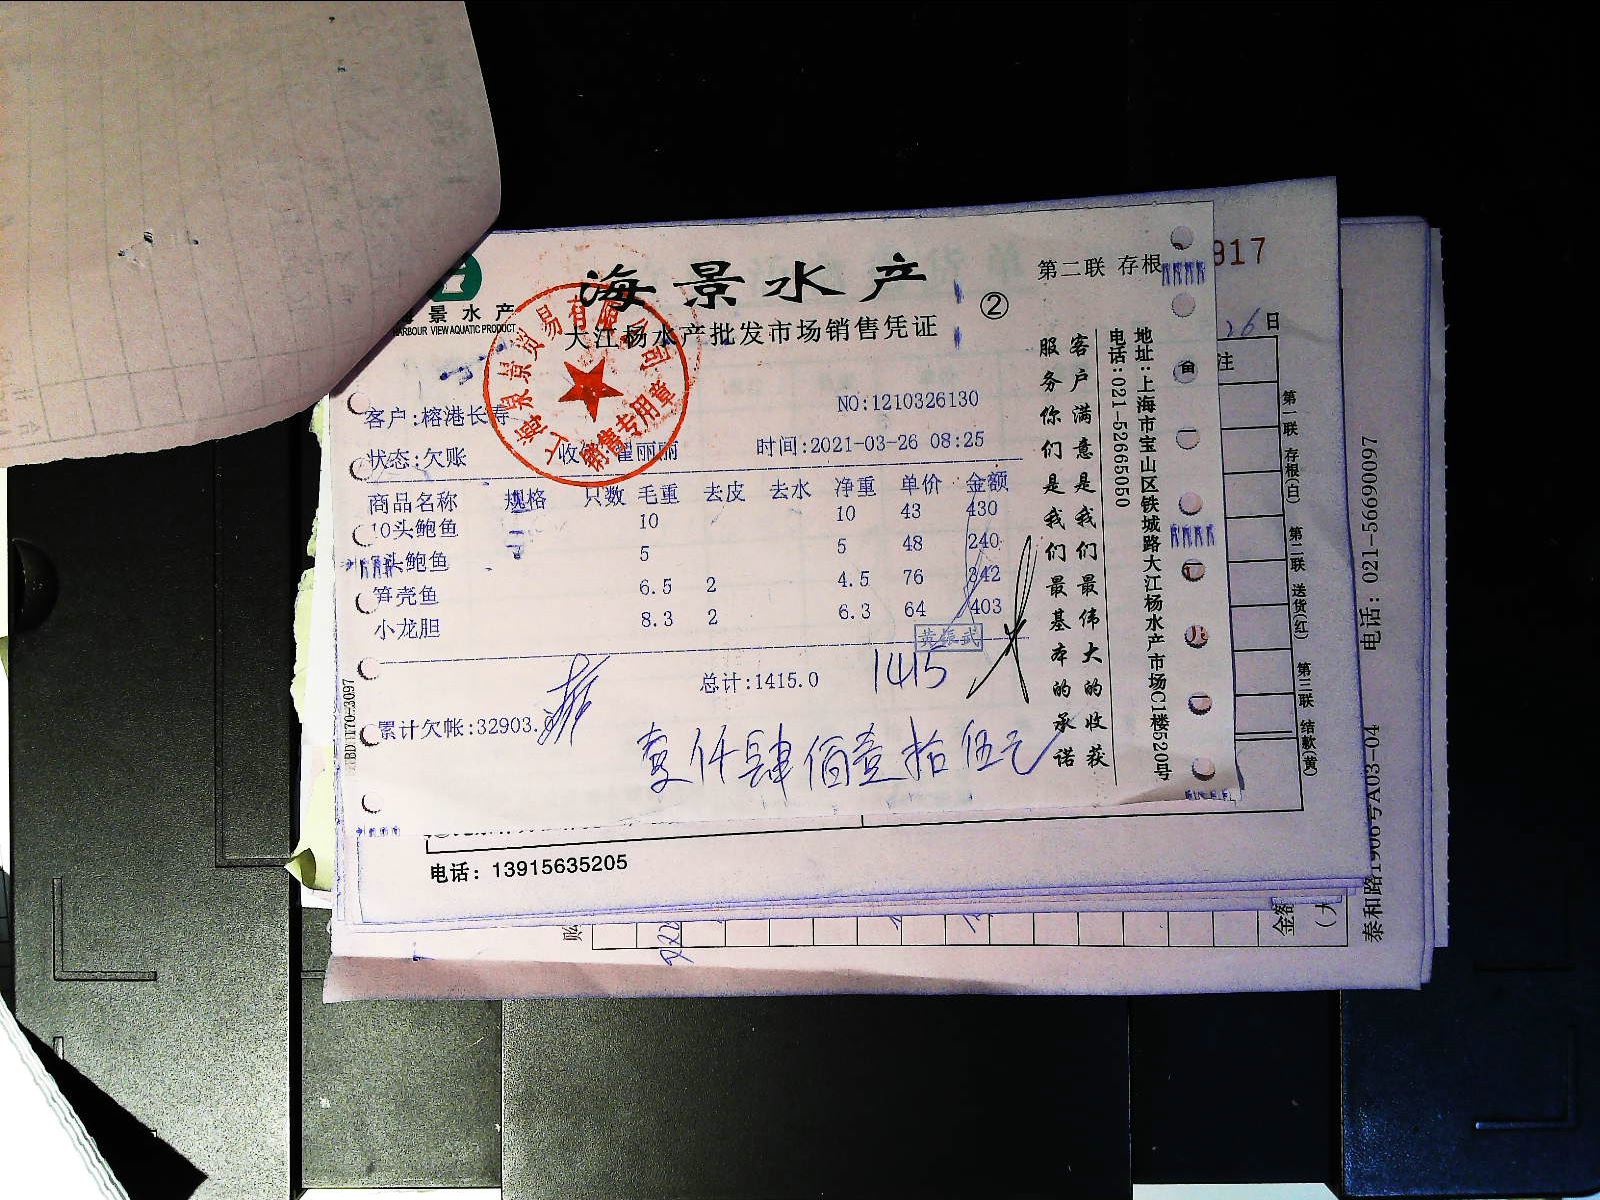 海景水产
海景水产
HARBOUR VIEW AQUATIC PRODUCT
大江杨水产批发市场销售凭证
②
第二联 存根
917
26日
客户:榕港长寿
NO:1210326130
状态:欠账
时间:2021-03-26 08:25
商品名称 规格 只数 毛重 去皮 去水 净重 单价 金额
10头鲍鱼 10 10 43 430
头鲍鱼 5 5 48 240
笋壳鱼 6.5 2 4.5 76 342
小龙胆 8.3 2 6.3 64 403
黄振武
总计:1415.0
1415
累计欠帐:32903.
壹仟肆佰壹拾伍元
客户满意是我们最伟大的收获
服务你们是我们最基本的承诺
地址:上海市宝山区铁城路大江杨水产市场C1楼520号
电话:021-52665050
销售专用章
注
第一联 存根(白) 第二联 送货(红) 第三联 结款(黄)
电话: 13915635205
电话: 021-56690097
泰和路
A03-04
金额
(大